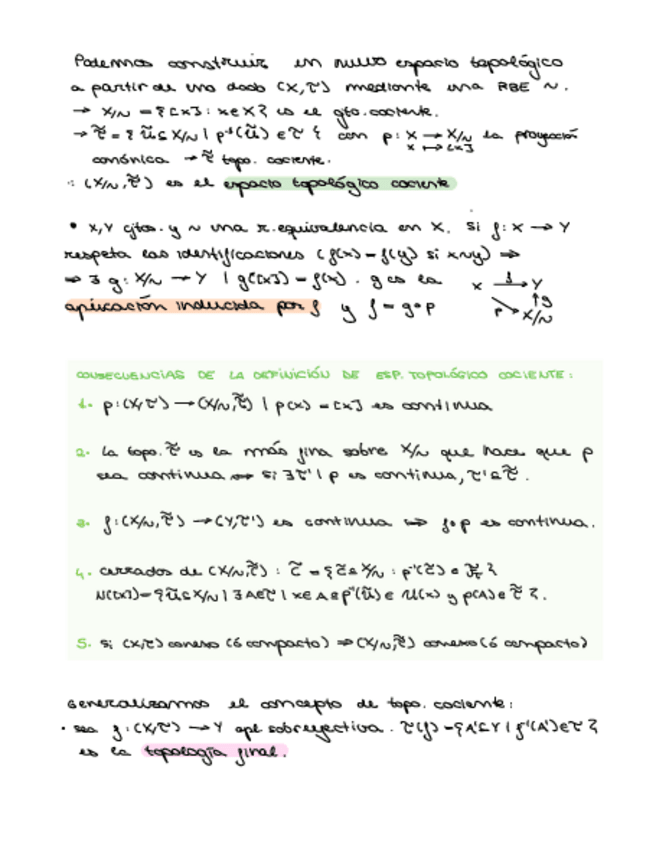 Podemos construir un nuevo espacio topológico
a partir de uno dado (X,τ) mediante una RBE ~.
→ X/~ = {[x]: x∈X} es el cjto. cociente.
→ τ̃ = {ũ⊆X/~ | p⁻¹(ũ) ∈ τ} con p: X → X/~ la proyección
x ↦ [x]
canónica → τ̃ topo. cociente.
∴ (X/~, τ̃) es el espacio topológico cociente
• X,Y cjtos. y ~ una r.equivalencia en X. Si f: X → Y
respeta las identificaciones (f(x) = f(y) si x~y) ⇒
⇒ ∃ g: X/~ → Y | g([x]) = f(x). g es la
aplicación inducida por f y f = g∘p
X f→ Y
p ↘ ↑g
X/~
CONSECUENCIAS DE LA DEFINICIÓN DE ESP. TOPOLÓGICO COCIENTE:
1. p: (X,τ) → (X/~, τ̃) | p(x) = [x] es continua
2. La topo. τ̃ es la más fina sobre X/~ que hace que p
sea continua ⇔ si ∃τ' | p es continua, τ'⊆τ̃.
3. f: (X/~, τ̃) → (Y,τ') es continua ⇔ f∘p es continua.
4. cerrados de (X/~, τ̃): C̃ = {c̃⊆X/~ : p⁻¹(c̃) ∈ }
N([x]) = {ũ⊆X/~ | ∃A∈τ | x∈A⊆p⁻¹(ũ) ∈ U(x) y p(A)∈τ̃}.
5. si (X,τ) conexo (ó compacto) ⇒ (X/~, τ̃) conexo (ó compacto)
Generalizamos el concepto de topo. cociente:
· sea f: (X,τ) → Y apl sobreyectiva. τ(f) = {A'⊆Y | f⁻¹(A')∈τ}
es la topología final.